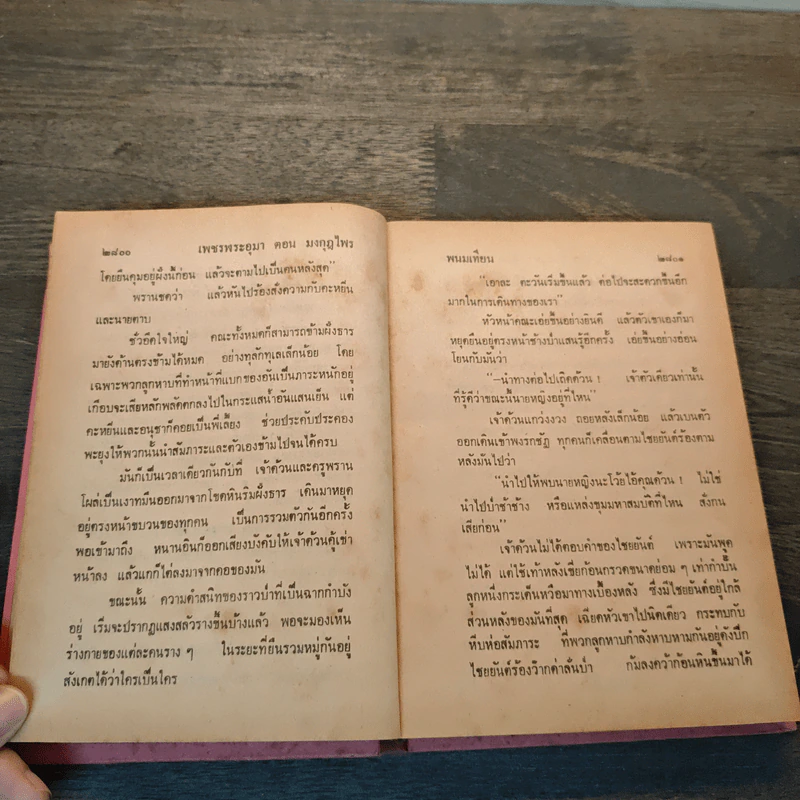 ๒๘๐๐ เพชรพระอุมา ตอน มงกุฎไพร
โดยยืนคุมอยู่ฝั่งนี้ก่อน แล้วจะตามไปเป็นคนหลังสุด”
พรานชดว่า แล้วหันไปร้องสั่งความกับคะหยิ่น
และนายดาบ
ชั่วอึดใจใหญ่ คณะทั้งหมดก็สามารถข้ามฝั่งธาร
มายังด้านตรงข้ามได้หมด อย่างทุลักทุเลเล็กน้อย โดย
เฉพาะพวกลูกหาบที่ทำหน้าที่แบกของอันเป็นภาระหนักอยู่
เกือบจะเสียหลักพลัดตกลงไปในกระแสน้ำอันแสนเย็น แต่
คะหยิ่นและอนุชาก็คอยเป็นพี่เลี้ยง ช่วยประคับประคอง
พะยุงให้พวกนั้นนำสัมภาระและตัวเองข้ามไปจนได้ครบ
มันก็เป็นเวลาเดียวกันกับที่ เจ้าด้วนและครูพราน
โผล่เป็นเงาทมึนออกมาจากโขดหินริมฝั่งธาร เดินมาหยุด
อยู่ตรงหน้าขบวนของทุกคน เป็นการรวมตัวกันอีกครั้ง
พอเข้ามาถึง หนานอินก็ออกเสียงบังคับให้เจ้าด้วนคู้เข่า
หน้าลง แล้วแกก็ไต่ลงมาจากคอของมัน
ขณะนั้น ความดำสนิทของราวป่าที่เป็นฉากกำบัง
อยู่ เริ่มจะปรากฏแสงสลัวรางขึ้นบ้างแล้ว พอจะมองเห็น
ร่างกายของแต่ละคนราง ๆ ในระยะที่ยืนรวมหมู่กันอยู่
สังเกตได้ว่าใครเป็นใคร
พนมเทียน ๒๘๐๑
“เอาละ ตะวันเริ่มขึ้นแล้ว ต่อไปจะสะดวกขึ้นอีก
มากในการเดินทางของเรา”
หัวหน้าคณะเอ่ยขึ้นอย่างยินดี แล้วตัวเขาเองก็มา
หยุดยืนอยู่ตรงหน้าช้างป่าแสนรู้อีกครั้ง เอ่ยขึ้นอย่างอ่อน
โยนกับมันว่า
“–นำทางต่อไปเถิดด้วน ! เจ้าตัวเดียวเท่านั้น
ที่รู้ดีว่าขณะนี้นายหญิงอยู่ที่ไหน”
เจ้าด้วนแกว่งงวง ถอยหลังเล็กน้อย แล้วเบนตัว
ออกเดินเข้าพงรกชัฏ ทุกคนก็เคลื่อนตามไชยยันต์ร้องตาม
หลังมันไปว่า
“นำไปให้พบนายหญิงนะโว้ยไอ้คุณด้วน ! ไม่ใช่
นำไปป่าช้าช้าง หรือแหล่งขุมมหาสมบัติที่ไหน สั่งกน
เสียก่อน”
เจ้าด้วนไม่ได้ตอบคำของไชยยันต์ เพราะมันพูด
ไม่ได้ แต่ใช้เท้าหลังเขี่ยก้อนกรวดขนาดย่อม ๆ เท่ากำปั้น
ลูกหนึ่งกระเด็นหวือมาทางเบื้องหลัง ซึ่งมีไชยยันต์อยู่ใกล้
ส่วนหลังของมันที่สุด เฉียดหัวเขาไปนิดเดียว กระทบกับ
หีบห่อสัมภาระ ที่พวกลูกหาบกำลังหาบหามกันอยู่ดังปึก
ไชยยันต์ร้องว๊ากด่าลั่นป่า ก้มลงคว้าก้อนหินขึ้นมาได้